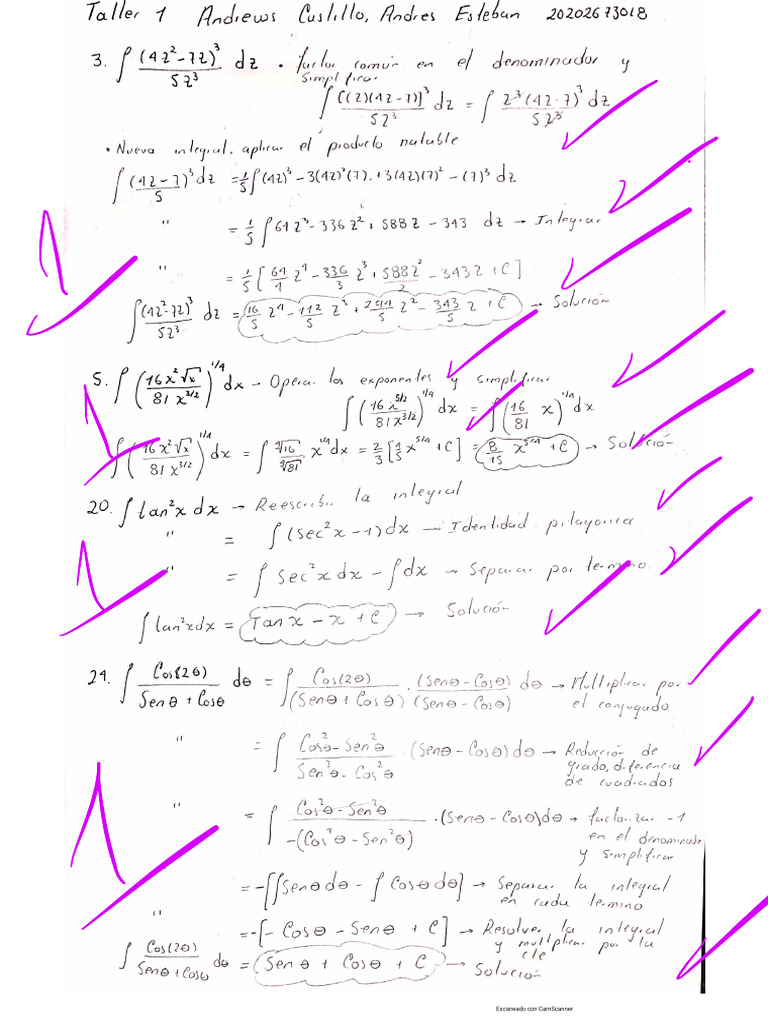 Taller 1 Andrews Custillo, Andres Esteban 20202673018
3. ∫ (4z²-7z)³/5z³ dz • factor común en el denominador y
simplificar
∫ [(z)(4z-7)]³/5z³ dz = ∫ z³(4z-7)³/5z³ dz
• Nueva integral. aplicar el producto notable
∫ (4z-7)³/5 dz = 1/5 ∫ (4z)³ - 3(4z)²(7) + 3(4z)(7)² - (7)³ dz
" = 1/5 ∫ 64z³ - 336z² + 588z - 343 dz → Integrar
" = 1/5 [64/4 z⁴ - 336/3 z³ + 588z²/2 - 343z + C]
∫ (4z²-7z)³/5z³ dz = 16/5 z⁴ - 112/5 z³ + 294/5 z² - 343/5 z + C → Solución
1
5. ∫ (16x²√x / 81x^3/2)^1/4 dx - Operar los exponentes y simplificar
∫ (16x^5/2 / 81x^3/2)^1/4 dx = ∫ (16/81 x)^1/4 dx
∫ (16x²√x / 81x^3/2)^1/4 dx = ∫ ⁴√16/⁴√81 x^1/4 dx = 2/3 [4/5 x^5/4 + C] = 8/15 x^5/4 + C → Solución
1
20. ∫ tan²x dx → Reescribir la integral
" = ∫ (sec²x - 1)dx — Identidad pitagorica
" = ∫ Sec²x dx - ∫dx → Separar por termino.
∫ tan²x dx = Tan x - x + C → Solución
1
29. ∫ Cos(2θ)/Senθ + Cosθ dθ = ∫ Cos(2θ)/(Senθ + Cosθ) · (Senθ - Cosθ)/(Senθ - Cosθ) dθ → Multiplicar por
el conjugado
" = ∫ Cos²θ - Sen²θ/Sen²θ - Cos²θ · (Senθ - Cosθ)dθ → Reducción de
grado, diferencia
de cuadrados
" = ∫ Cos²θ - Sen²θ/-(Cos²θ - Sen²θ) · (Senθ - Cosθ)dθ → factorizar -1
en el denominador
y simplificar
= -[∫Senθdθ - ∫Cosθdθ] → Separar la integral
en cada termino
" = -[-Cosθ - Senθ + C] → Resolver la integral
y multiplicar por la
cte
∫ Cos(2θ)/Senθ + Cosθ dθ = Senθ + Cosθ + C → Solución
1
Escaneado con CamScanner